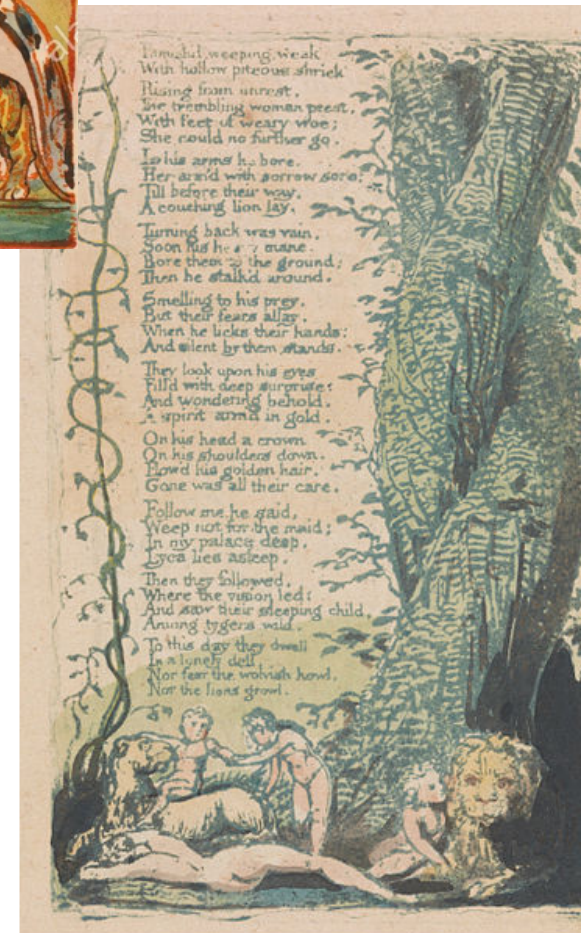 Famish'd, weeping, weak
With hollow piteous shriek
Rising from unrest,
The trembling woman prest,
With feet of weary woe;
She could no further go.
In his arms he bore.
Her arm'd with sorrow sore:
Till before their way,
A couching lion lay.
Turning back was vain,
Soon his heavy mane.
Bore them to the ground;
Then he stalk'd around.
Smelling to his prey.
But their fears allay.
When he licks their hands:
And silent by them stands.
They look upon his eyes
Fill'd with deep surprise:
And wondering behold.
A spirit arm'd in gold.
On his head a crown
On his shoulders down.
Flow'd his golden hair.
Gone was all their care.
Follow me he said,
Weep not for the maid;
In my palace deep,
Lyca lies asleep.
Then they followed,
Where the vision led:
And saw their sleeping child,
Among tygers wild.
To this day they dwell
In a lonely dell
Nor fear the wolvish howl,
Nor the lions growl.